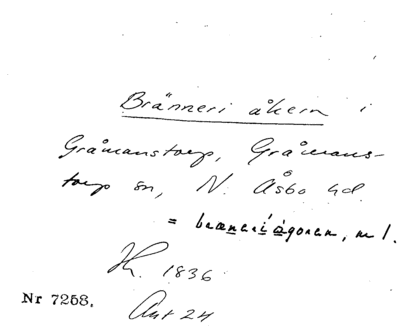 Bränneri åkern i
Gråmanstorp, Gråmans-
torp sn, N. Åsbo hd.
= bræneri ågoren, m 1.
1836
Nr 7258. Ant 24